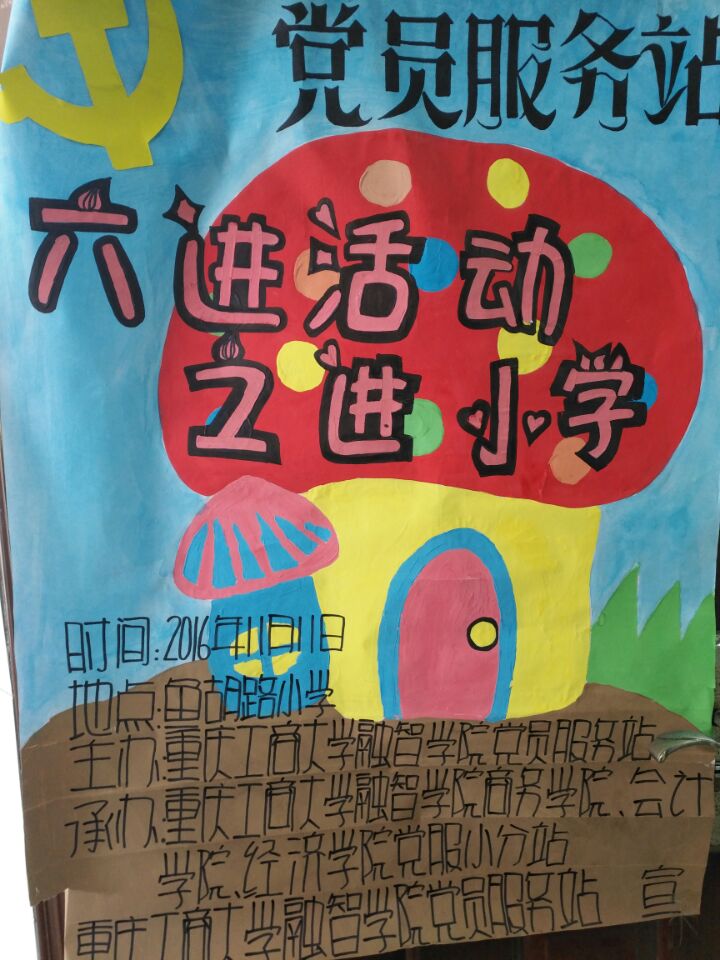 党员服务站
六进活动
之进小学
时间:2016年11月11日
地点:鱼胡路小学
主办:重庆工商大学融智学院党员服务站
承办:重庆工商大学融智学院商务学院、会计
学院、经济学院党服小分站
重庆工商大学融智学院党员服务站 宣